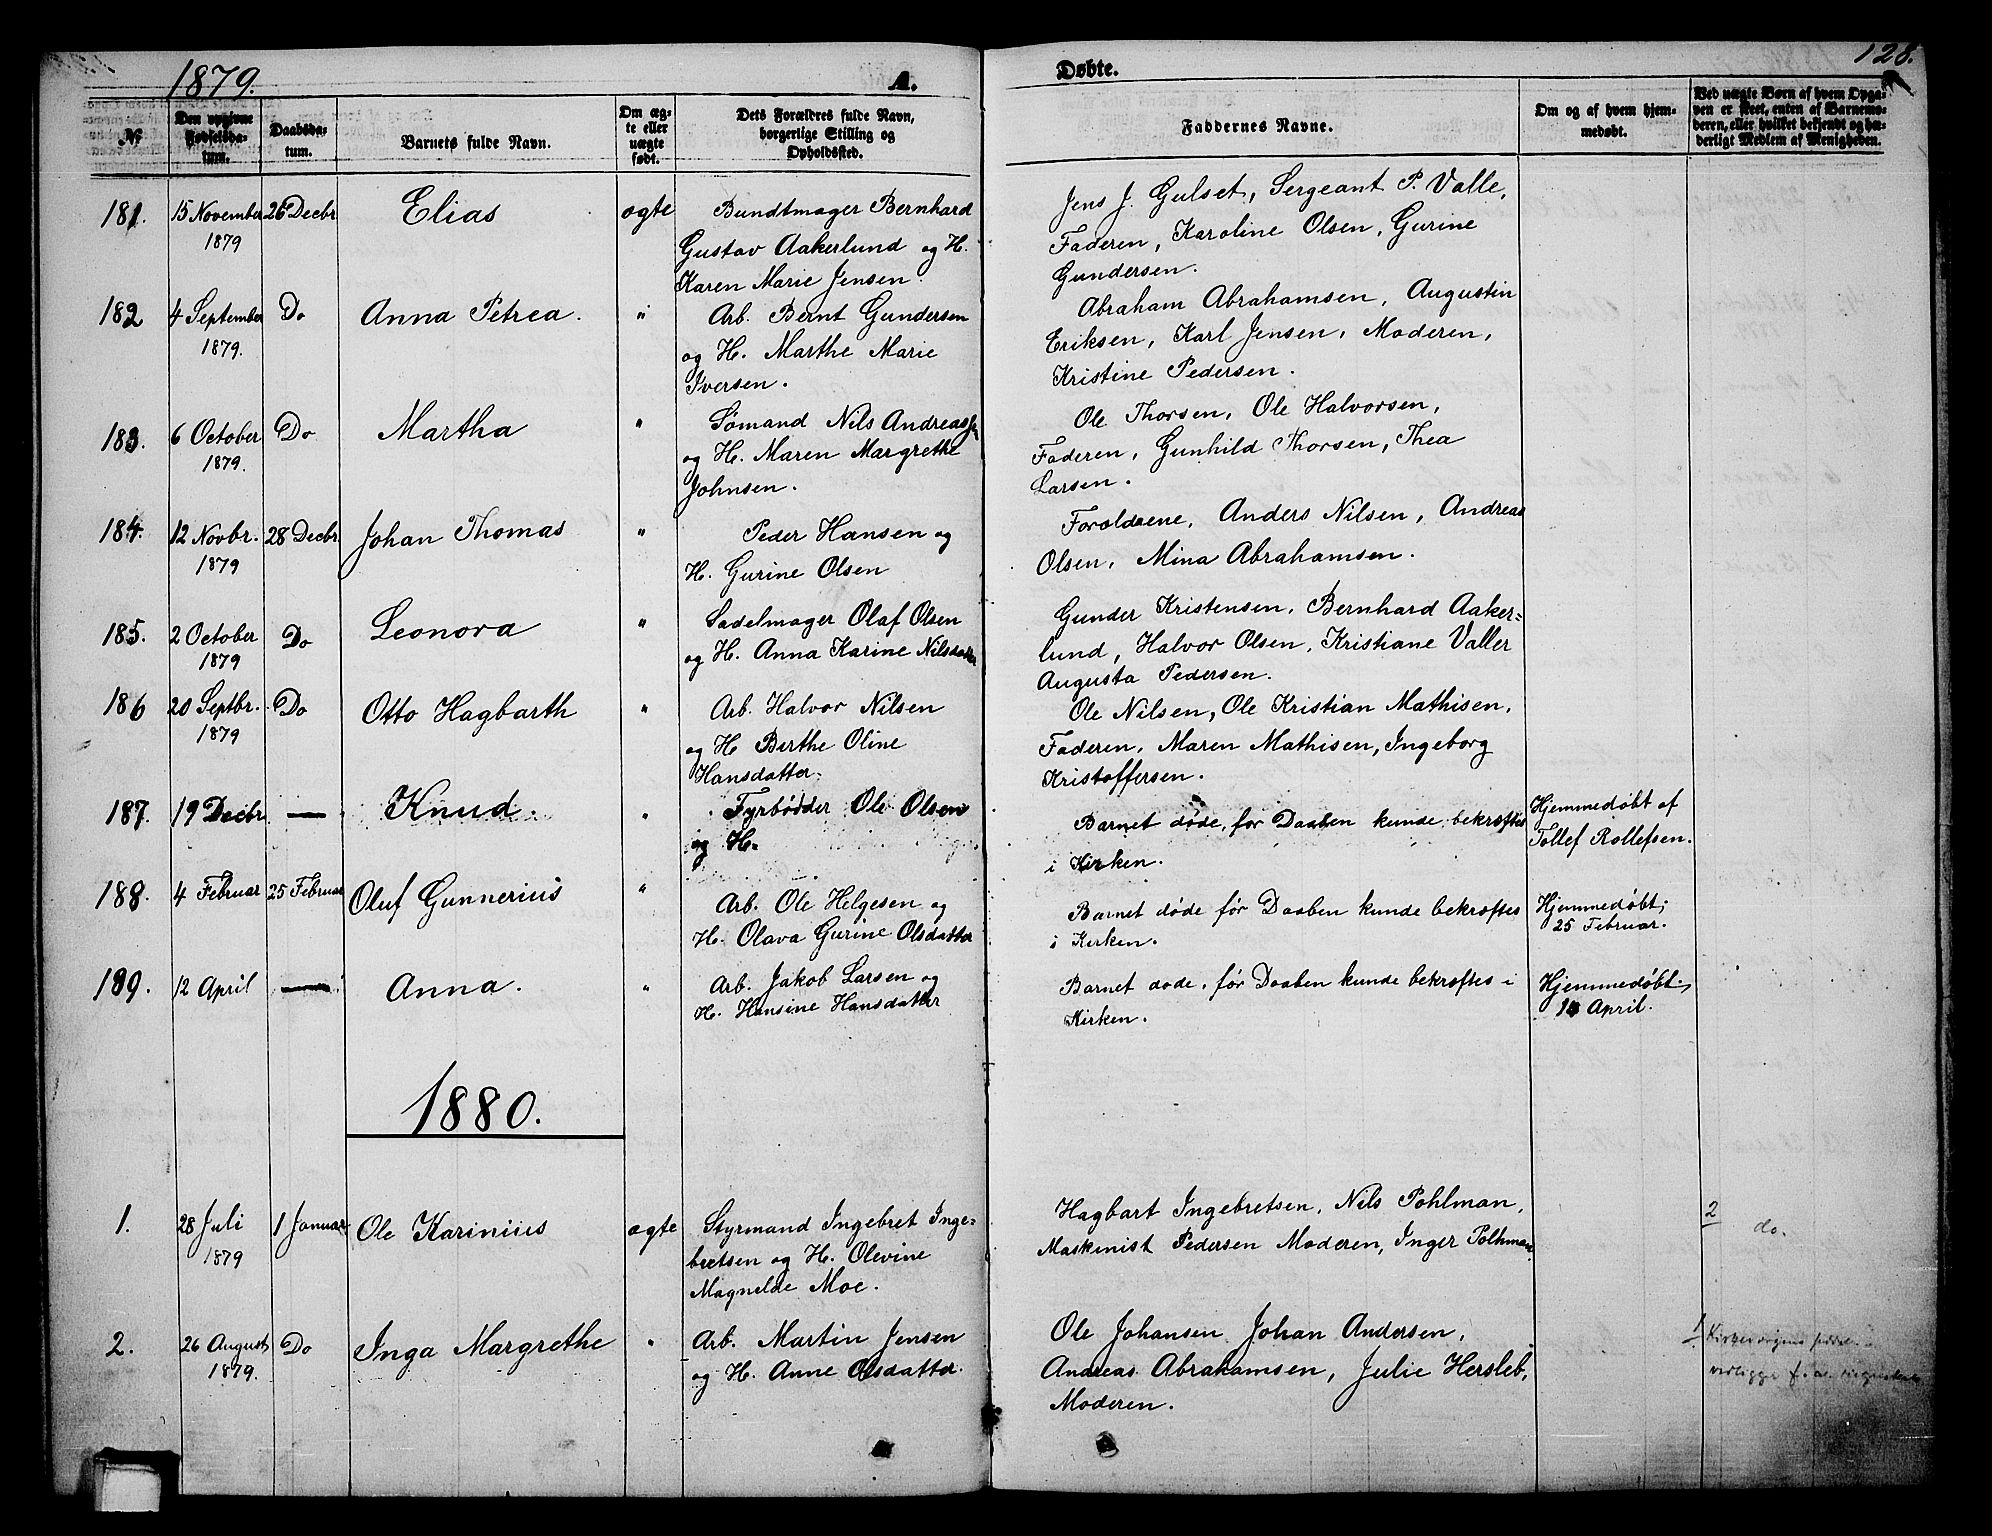 1879.
A.
Døbte.
128.
№
Den opgivne Fødselsdatum.
Daabsdatum.
Barnets fulde Navn.
Om ægte eller uægte født.
Dets Forældres fulde Navn, borgerlige Stilling og Opholdssted.
Faddernes Navne.
Om og af hvem hjemmedøbt.
Ved uægte Børn af hvem Opgaven er skeet, enten af Barnemoderen, eller hvilket bekjendt og hæderligt Medlem af Menigheden.
181. 15 November 26 Decbr Elias ægte Bundtmager Bernhard Jens J. Gulset, Sergeant P. Valle,
1879 Gustav Aakerlund og H. Faderen, Karoline Olsen, Gurine
Karen Marie Jensen. Gundersen.
182 4 September Do Anna Petrea. " Arb. Bernt Gundersen Abraham Abrahamsen, Augustin
1879. og H. Marthe Marie Eriksen, Karl Jensen, Moderen,
Iversen. Kristine Pedersen.
183. 6 October Do Martha " Sømand Nils Andreassen Ole Thorsen, Ole Halvorsen,
1879. og H. Maren Margrethe Faderen, Gunhild Thorsen, Thea
Johnsen. Larsen.
184. 12 Novbr. 28 Decbr. Johan Thomas " Peder Hansen og Forældrene, Anders Nilsen, Andreas
1879 H. Gurine Olsen Olsen, Mina Abrahamsen.
185. 2 October Do Leonora " Sadelmager Olaf Olsen Gunder Kristensen, Bernhard Aaker=
1879 og H. Anna Karine Nilsdatter lund, Halvor Olsen, Kristiane Valler
Augusta Pedersen.
186 20 Septbr. Do Otto Hagbarth " Arb. Halvor Nilsen Ole Nilsen, Ole Kristian Mathisen,
1879 og H Berthe Oline Faderen, Maren Mathisen, Ingeborg
Hansdatter. Kristoffersen.
187. 19 Decbr — Knud. " Fyrbødder Ole Olsen Barnet døde, før Daaben kunde bekræftes Hjemmedøbt af
og H. i Kirken. Tollef Rollefsen.
188. 4 Februar 25 Februar Oluf Gunnerius " Arb. Ole Helgesen og Barnet døde før Daaben kunde bekræftes Hjemmedøbt;
H. Olava Gurine Olsdatter i Kirken. 25 Februar.
189. 12 April — Anna. " Arb. Jakob Larsen og Barnet døde, før Daaben kunde bekræftes i Hjemmedøbt
H. Hansine Hansdatter Kirken. April.
1880.
1. 28 Juli 1 Januar Ole Karinius ægte Styrmand Ingebret Inge= Hagbart Ingebretsen, Nils Pohlman, 2 do.
1879 bretsen og H. Olevine Maskinist Pedersen Moderen, Inger Polhman
Magnelde Moe.
2. 26 August Do Inga Margrethe " Arb. Martin Jensen Ole Johansen Johan Andersen, 1
1879. og H. Anne Olsdatter. Andreas Abrahamsen, Julie Hersleb,
Moderen.